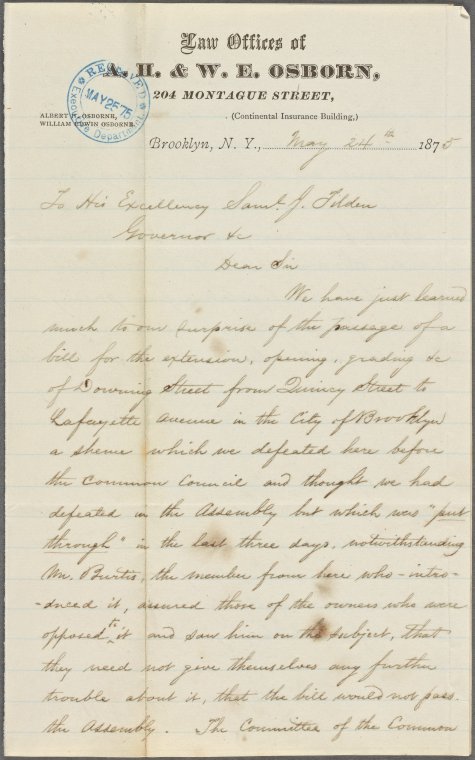 Law Offices of
A. H. & W. E. OSBORN,
204 MONTAGUE STREET,
ALBERT H. OSBORNE,
WILLIAM EDWIN OSBORNE.
(Continental Insurance Building,)
RECEIVED
MAY 25 75
Executive Department.
Brooklyn, N. Y., May 24th 1875
To His Excellency Saml J. Tilden
Governor &c
Dear Sir
We have just learned
much to our surprise of the passage of a
bill for the extension, opening, grading &c
of Downing Street from Quincy Street to
Lafayette Avenue in the City of Brooklyn
a sheme which we defeated here before
the Common Council and thought we had
defeated in the Assembly but which was "put
through" in the last three days, notwithstanding
Mr. Burtis, the member from here who intro-
-duced it, assured those of the owners who were
opposed to it and saw him on the subject, that
they need not give themselves any further
trouble about it, that the bill would not pass
the Assembly. The Committee of the Common